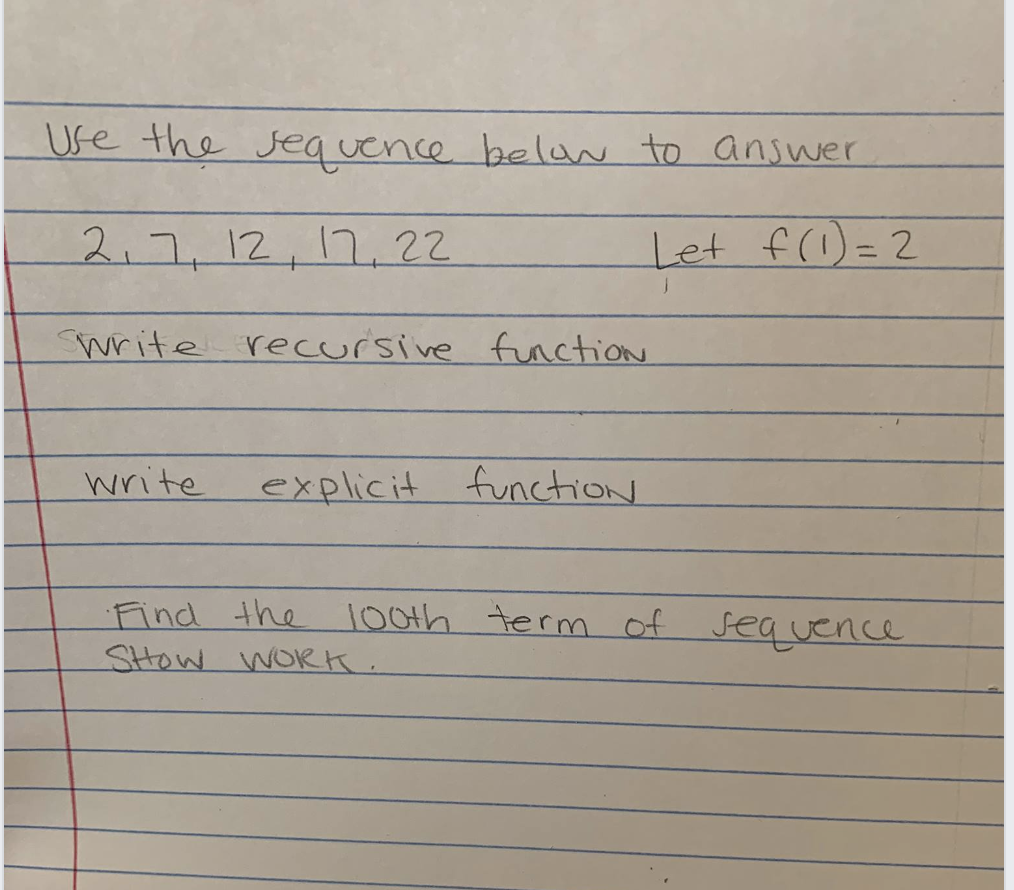 Use the sequence below to answer
2, 7, 12, 17, 22 Let f(1) = 2
write recursive function
write explicit function
Find the 100th term of sequence
SHOW WORK.